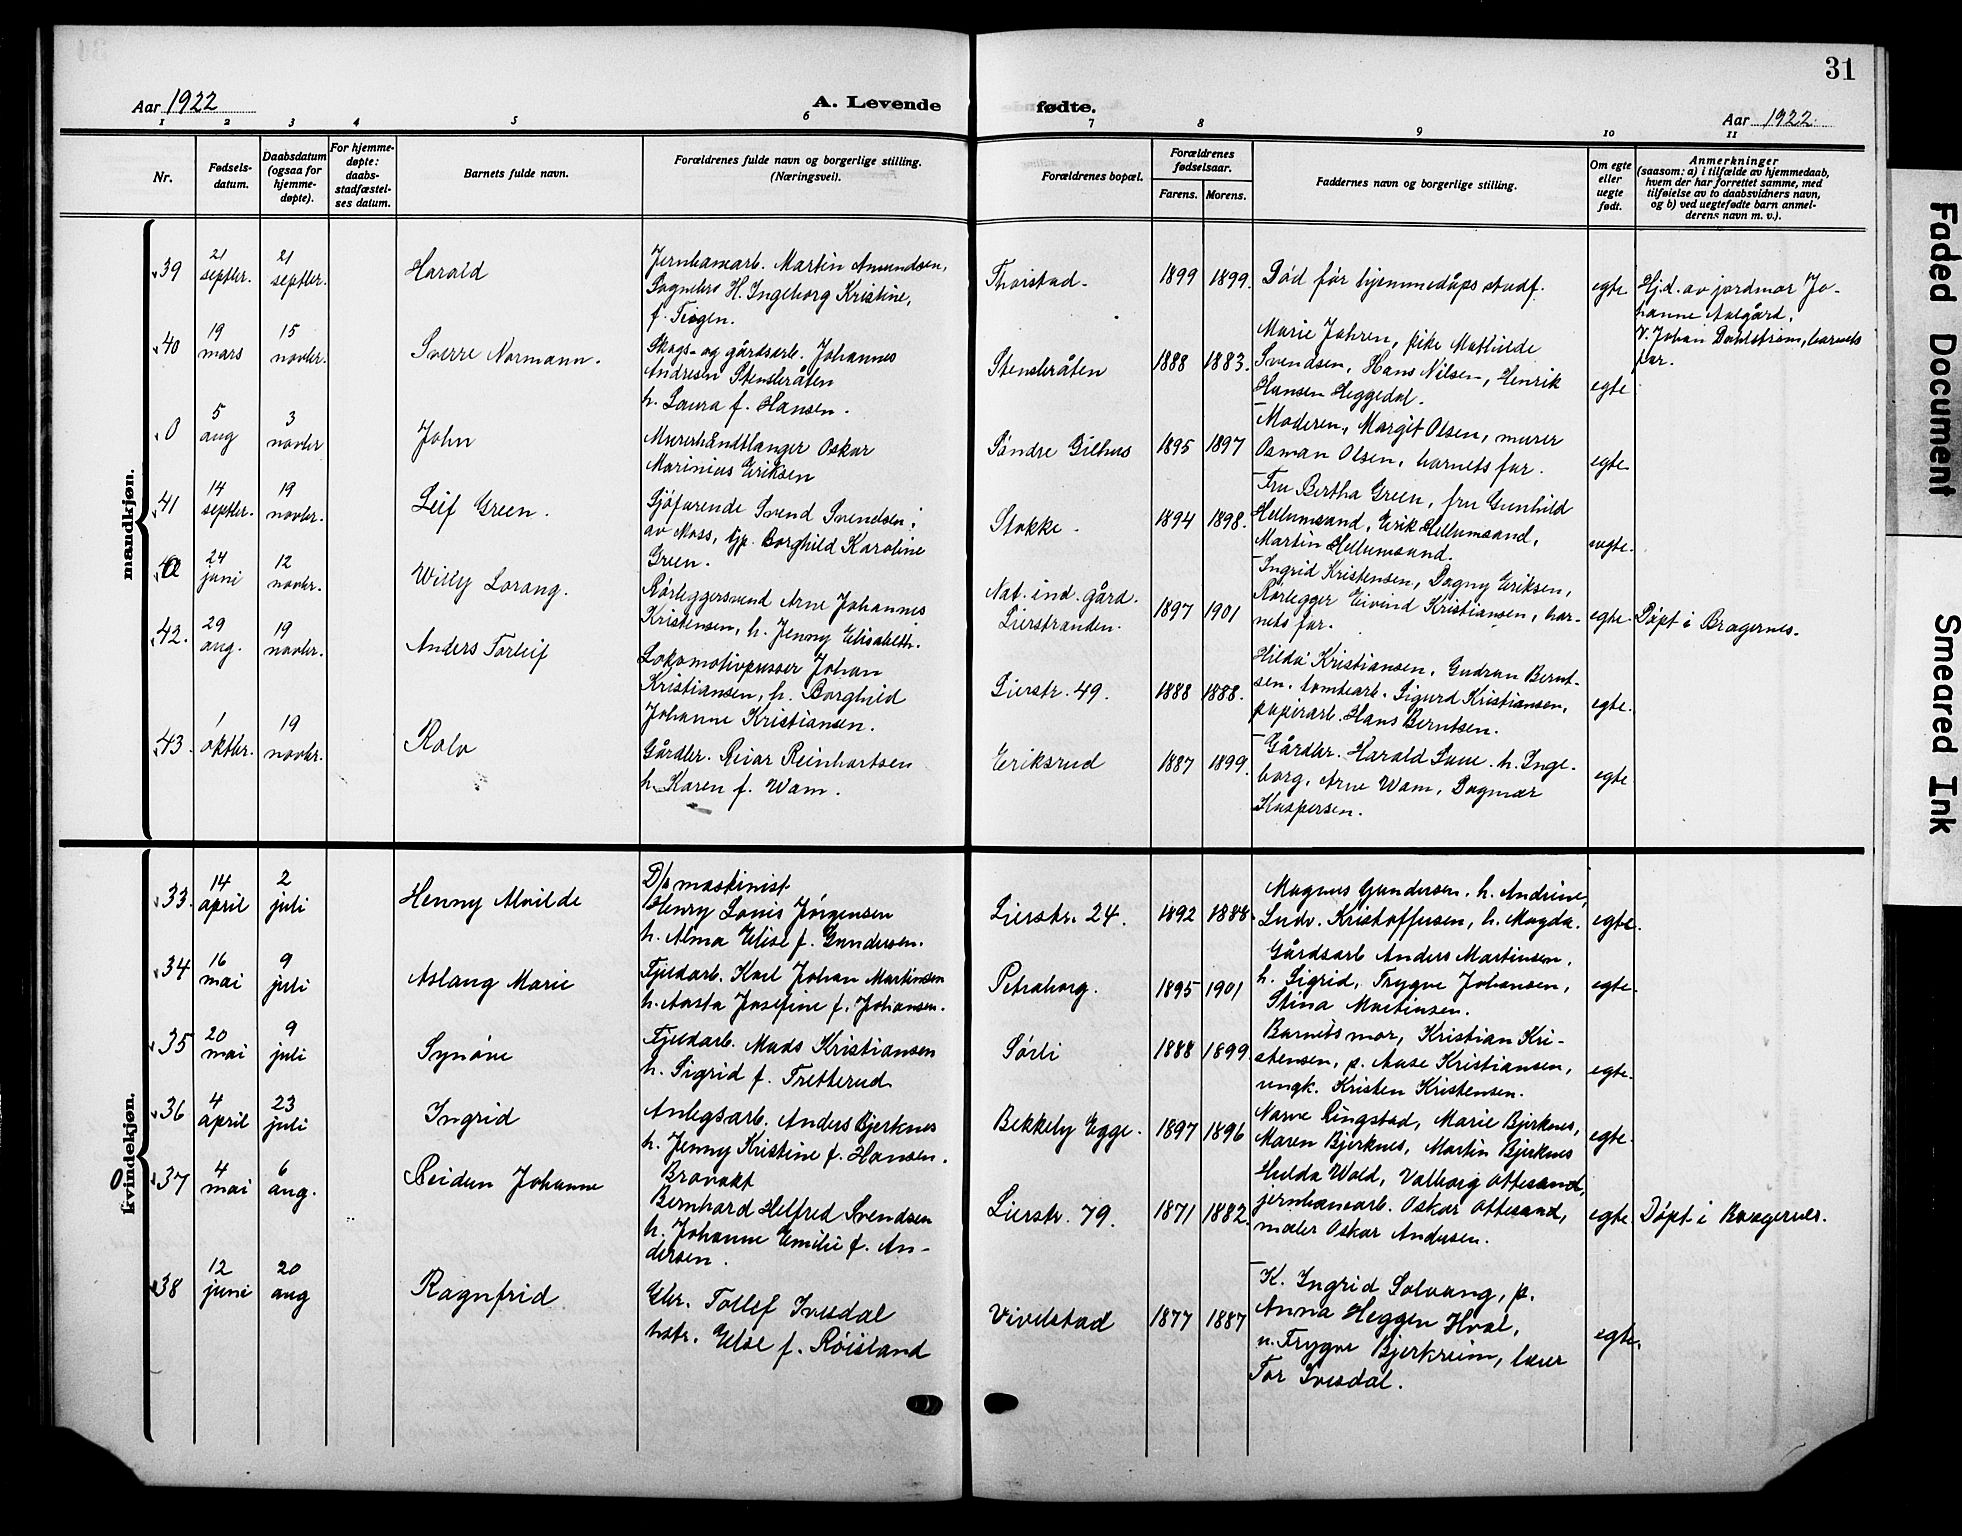 31
Aar 1922
A. Levende
fødte.
Aar 1922
1 2 3 4 5 6 7 8 9 10 11
Nr.
Fødsels-
datum.
Daabsdatum
(ogsaa for
hjemme-
døpte).
For hjemme-
døpte:
daabs-
stadfæstel-
ses datum.
Barnets fulde navn.
Forældrenes fulde navn og borgerlige stilling.
(Næringsvei).
Forældrenes bopæl.
Forældrenes
fødselsaar.
Farens. Morens.
Faddernes navn og borgerlige stilling.
Om egte
eller
uegte
født.
Anmerkninger
(saasom: a) i tilfælde av hjemmedaab,
hvem der har forrettet samme, med
tilføielse av to daabsvidners navn,
og b) ved uegtefødte barn anmel-
derens navn m. v.).
mandkjøn.
39
21
septbr.
21
septbr.
Harald
Jernbanearb. Martin Amundsen,
Sognebro H. Ingeborg Kristine,
f. Teigen.
Thorstad.
1899
1899.
Død før hjemmedåps stadf.
egte
Hj.d. av jordmor Jo-
hanne Aalgård.
V. Johan Dahlstrøm, barnets
far.
40
19
mars
15
novbr.
Sverre Normann.
Skogs- og gårdsarb. Johannes
Andresen Stensbråten
h. Laura f. Hansen.
Stensbråten
1888
1883.
Marie Jahren, pike Mathilde
Svendsen, Hans Nilsen, Henrik
Hansen Heggedal.
egte
0
5
aug
3
novbr
John
Murerhåndtlanger Oskar
Marinius Eriksen
Søndre Gilhus
1895
1897
Moderen, Margit Olsen, murer
Osman Olsen, barnets far.
egte
41
14
septbr.
19
novbr.
Leif Green.
Sjøfarende Svend Svendsen,
av Moss, tjp. Borghild Karoline
Green.
Stokke.
1894
1898.
Fru Bertha Green, fru Gunhild
Hellumsand, Erik Hellumsand,
Martin Hellumsand.
uegte.
0
24
juni
12
novbr.
Willy Lorang.
Rørleggersvend Arne Johannes
Kristensen, h. Jenny Elisabeth.
Nat. ind. gård.
Lierstranden.
1897
1901
Ingrid Kristensen, Dagny Eriksen,
Rørlegger Eivind Kristiansen, bar-
nets far.
egte.
Døpt i Bragernes.
42.
29
aug.
19
novbr.
Anders Torleif
Lokomotivpusser Johan
Kristiansen, h. Borghild
Johanne Kristiansen.
Lierstr. 49.
1888
1888.
Hilda Kristiansen, Gudrun Bernt-
sen, tomtearb. Sigurd Kristiansen,
papirarb. Hans Berntsen.
egte.
43.
1
oktbr.
19
novbr.
Rolv
Gårdbr. Reiar Reinhartsen
h. Karen f. Wam.
Eriksrud
1887
1899.
Gårdbr. Harald Lune h. Inge-
borg, Arne Wam, Dagmar
Kaspersen.
egte
Kvindekjøn.
33.
14
april
2
juli
Henny Alvilde
D/s maskinist
Henry Louis Jørgensen
h. Alma Elise f. Gundersen.
Lierstr. 24.
1892
1888.
Magnus Gundersen, h. Andrine,
Ludv. Kristoffersen, h. Magda.
egte.
34
16
mai
9
juli
Aslaug Marie
Fjeldarb. Karl Johan Martinsen
h. Aasta Josefine f. Johansen.
Petraborg.
1895
1901
Gårdsarb Anders Martinsen,
h. Sigrid, Trygve Johansen,
Stina Martinsen.
egte.
35
20
mai
9
juli
Synøve
Fjeldarb. Mads Kristiansen
h. Sigrid f. Tretterud
Sørli
1888
1899.
Barnets mor, Kristian Kri-
stensen, p. Aase Kristiansen,
ungk. Kristen Kristensen.
egte.
36
4
april
23
juli
Ingrid
Anlegsarb. Anders Bjerknes
h. Jenny Kristine f. Hansen.
Bekkeby Egge.
1897
1896
Narve Ringstad, Marie Bjerknes,
Maren Bjerknes, Martin Bjerknes
egte.
0 37
4
mai
6
aug.
Reidun Johanne
Brovakt
Bernhard Helfred Svendsen
h. Johanne Emilie f. An-
dersen.
Lierstr. 79.
1871
1882.
Hilda Wold, Valborg Ottesand,
jernbanearb. Oskar Ottesand,
maler Oskar Andersen.
egte
Døpt i Bragernes.
38
12
juni
20
aug
Ragnfrid
Gbr. Tollef Ivesdal
hstr. Else f. Røisland
Vivelstad
1877
1887
K. Ingrid Solvang, p.
Anna Heggen Hval,
u. Trygve Bjerkreim, lærer
Tor Ivesdal.
egte.
Faded Document
Smeared Ink